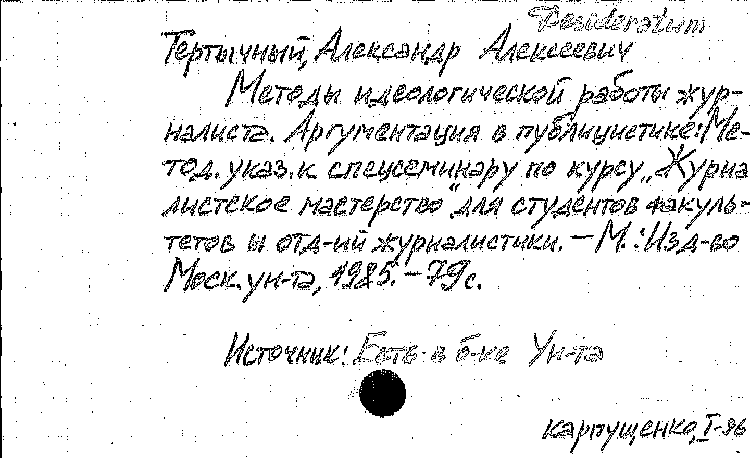 Desideratum
Тертычный, Александр Алексеевич
Методы идеологической работы жур-
налиста. Аргументация в публицистике: Ме-
тод. указ. к спецсеминару по курсу „Журна
листское мастерство" для студентов факуль-
тетов и отд-ний журналистики. – М.: Изд-во
Моск. ун-та, 1985. – 79 с.
Источник: Есть в б-ке Ун-та
Карпущенко, I-86